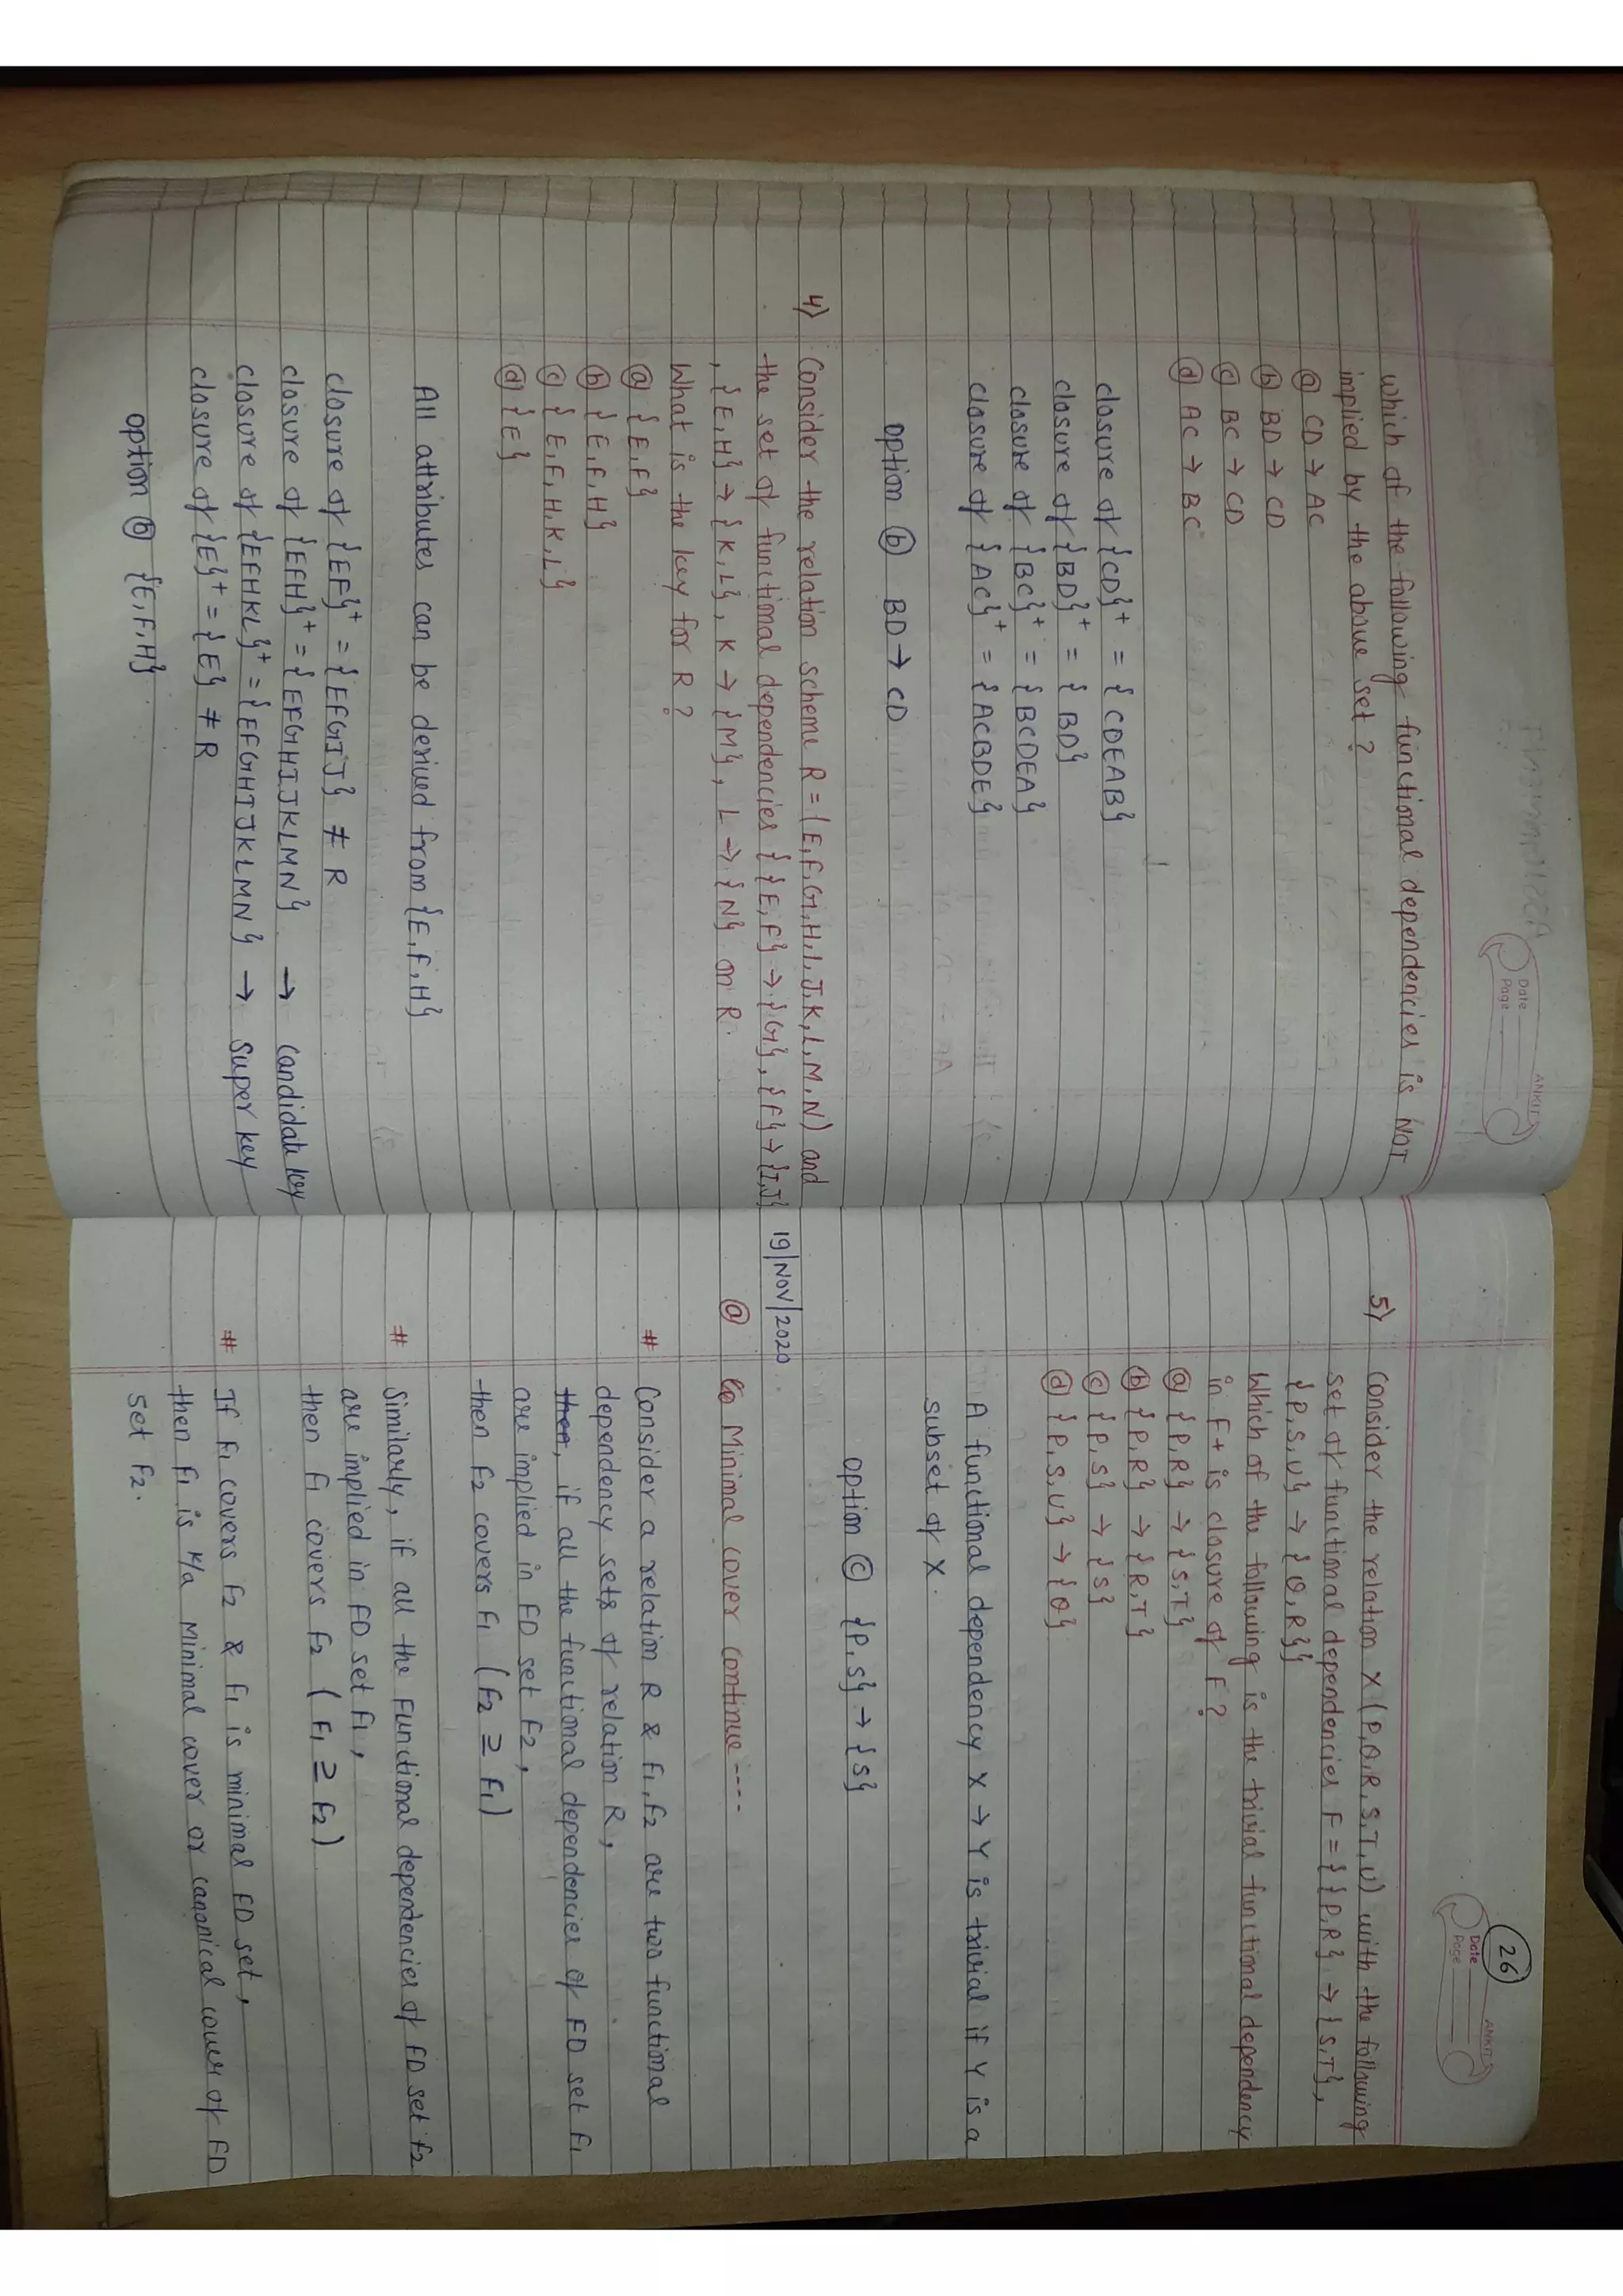 ANKIT
Date
Page
which of the following functional dependencies is NOT
implied by the above set?
ⓐ CD → AC
ⓑ BD → CD
ⓒ BC → CD
ⓓ AC → BC
closure of {CD}⁺ = {CDEAB}
closure of {BD}⁺ = {BD}
closure of {BC}⁺ = {BCDEA}
closure of {AC}⁺ = {ACBDE}
option ⓑ BD → CD
4) Consider the relation scheme R = (E,F,G,H,I,J,K,L,M,N) and
the set of functional dependencies {{E,F} → {G}, {F} → {I,J}
, {E,H} → {K,L}, K → {M}, L → {N} on R.
What is the key for R?
ⓐ {E,F}
ⓑ {E,F,H}
ⓒ {E,F,H,K,L}
ⓓ {E}
All attributes can be derived from {E,F,H}
closure of {EF}⁺ = {EFGIJ} ≠ R
closure of {EFH}⁺ = {EFGHIJKLMN} → candidate key
closure of {EFHKL}⁺ = {EFGHIJKLMN} → super key
closure of {E}⁺ = {E} ≠ R
option ⓑ {E,F,H}
26
ANKIT
Date
Page
5) Consider the relation X (P,Q,R,S,T,U) with the following
set of functional dependencies F = {{P,R} → {S,T},
{P,S,U} → {Q,R}}
Which of the following is the trivial functional dependency
in F+ is closure of F?
ⓐ {P,R} → {S,T}
ⓑ {P,R} → {R,T}
ⓒ {P,S} → {S}
ⓓ {P,S,U} → {Q}
A functional dependency X → Y is trivial if Y is a
subset of X.
option ⓒ {P,S} → {S}
19/NOV/2020
ⓐ Minimal cover continue ----
# Consider a relation R & F1,F2 are two functional
dependency sets of relation R,
then, if all the functional dependencies of FD set F1
are implied in FD set F2,
then F2 covers F1 (F2 ⊇ F1)
# Similarly, if all the Functional dependencies of FD set F2
are implied in FD set F1,
then F1 covers F2 (F1 ⊇ F2)
# If F1 covers F2 & F1 is minimal FD set,
then F1 is k/a Minimal cover or canonical cover of FD
set F2.